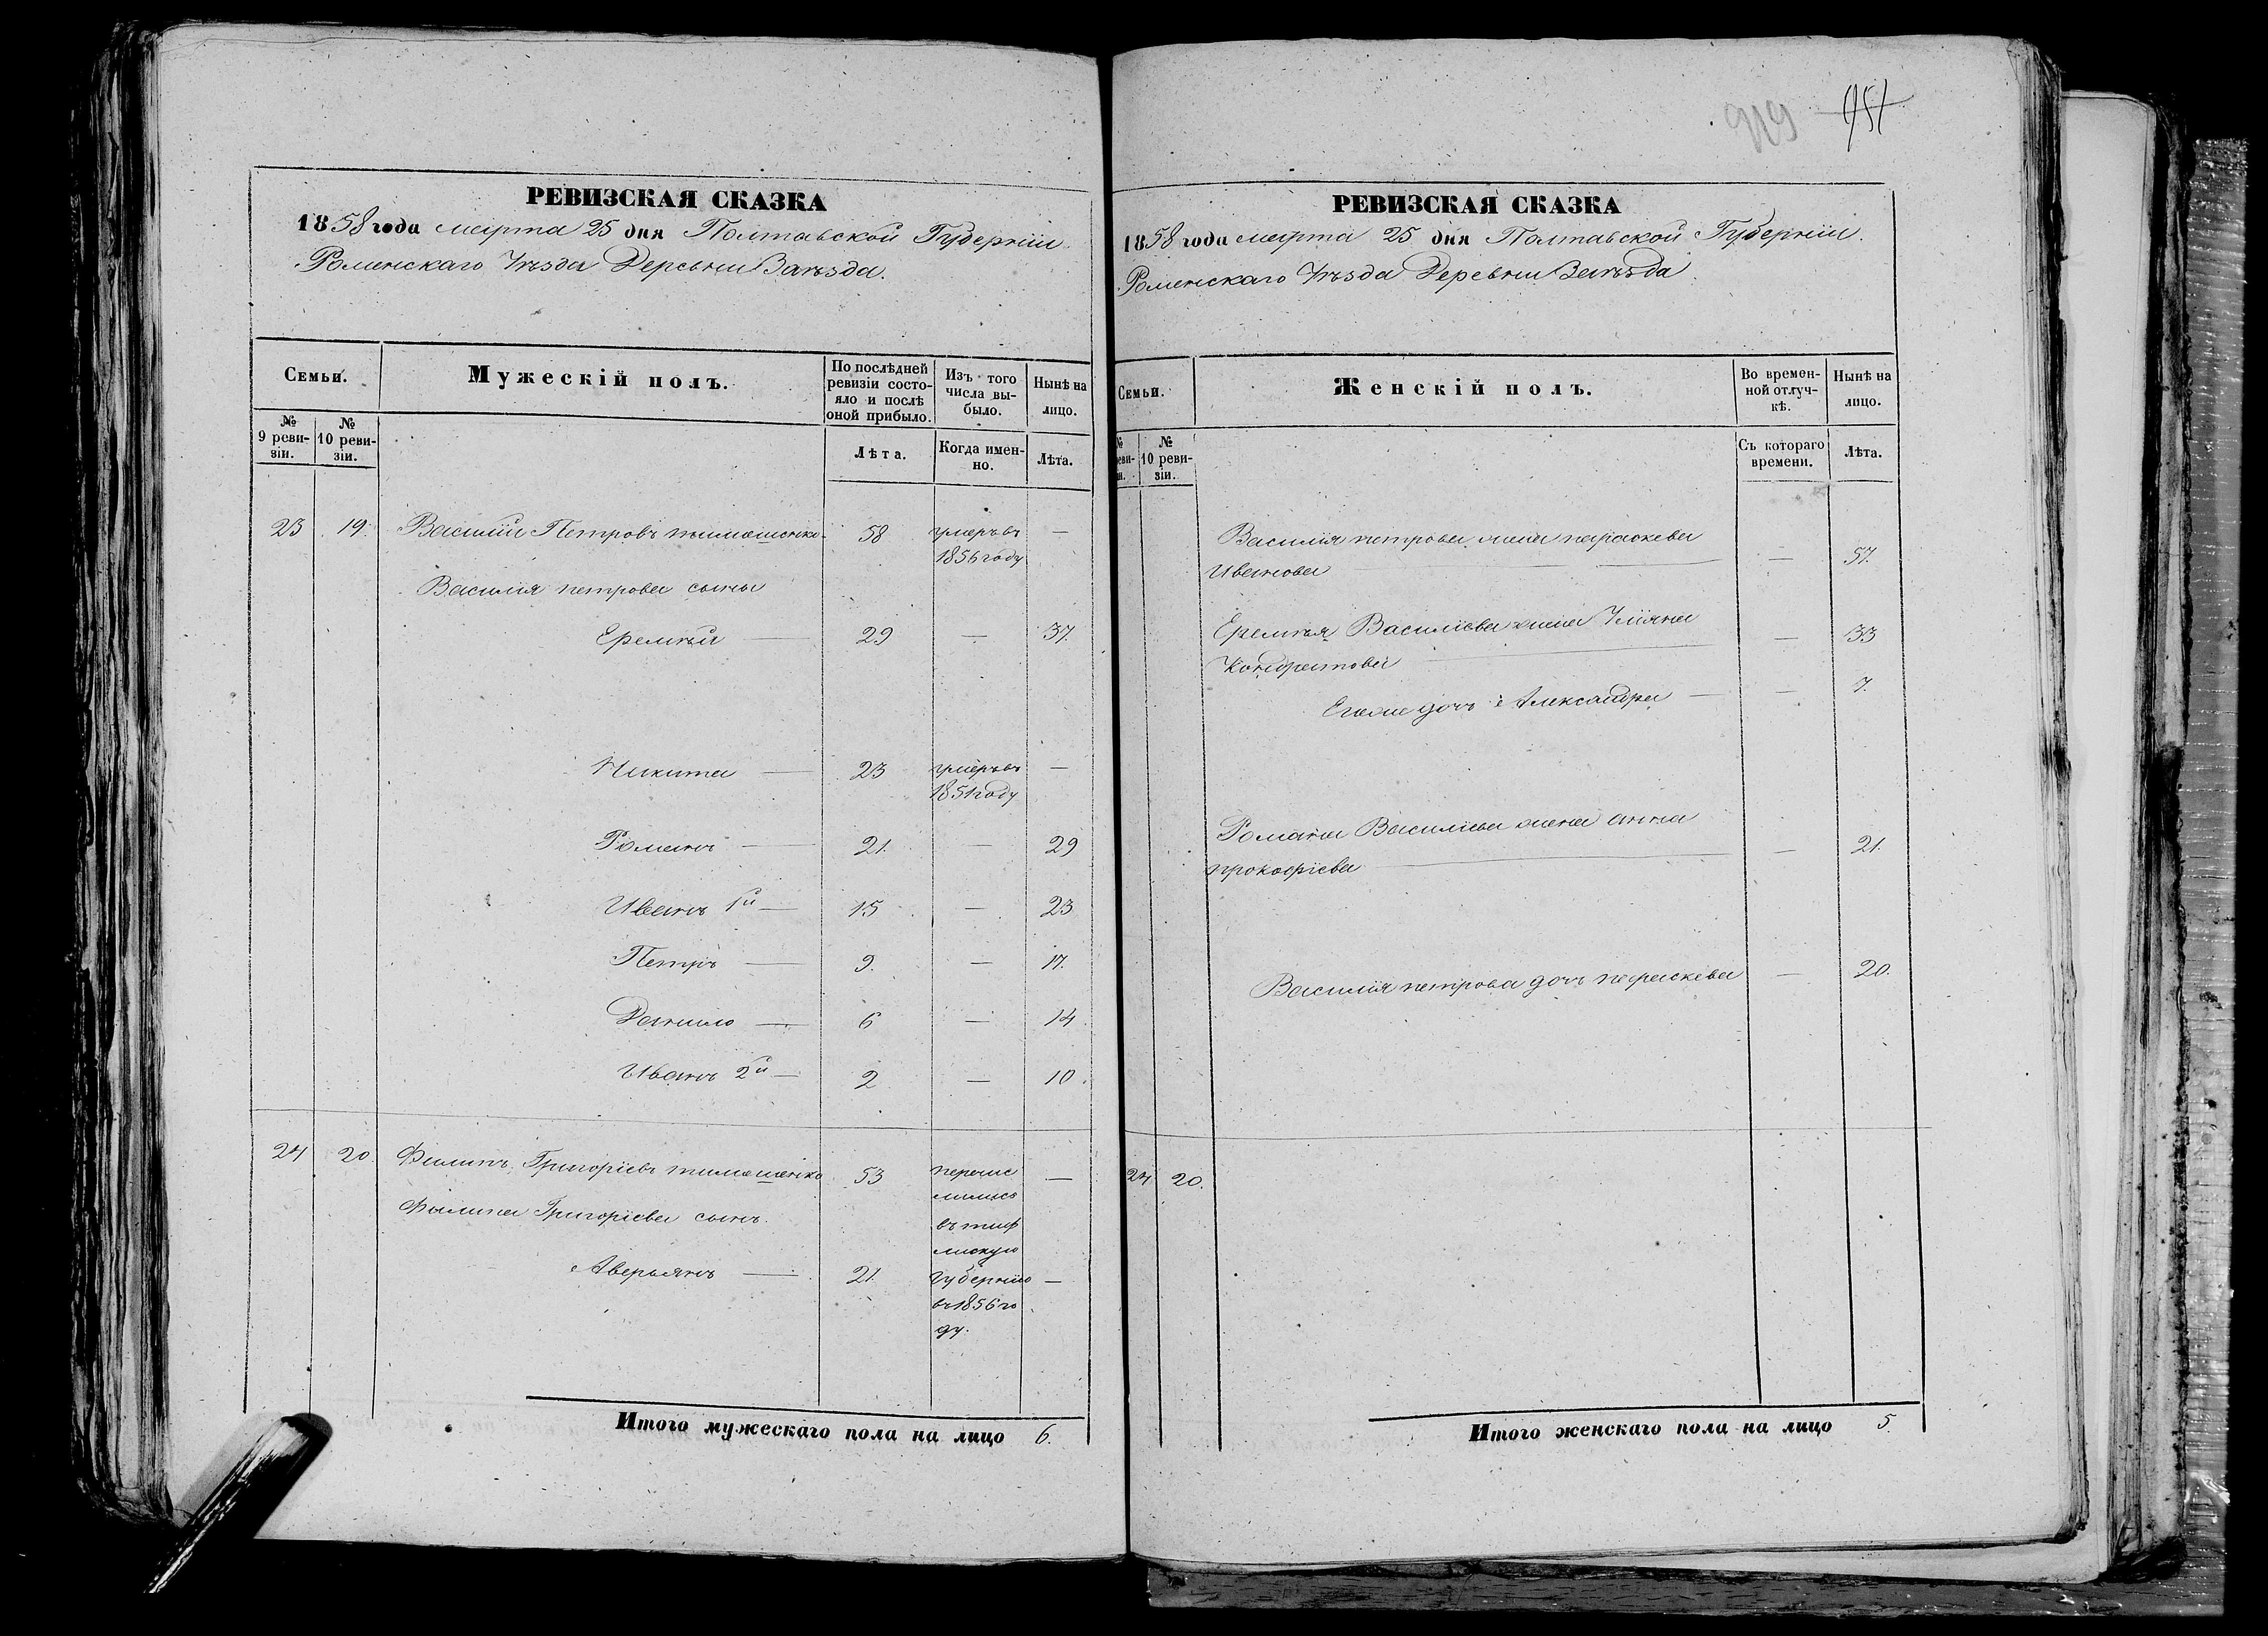 РЕВИЗСКАЯ СКАЗКА
1858 года марта 25 дня Полтавской Губерніи
Роменскаго Уѣзда Деревни Заѣзда.
Семьи.
Мужескій полъ.
По послѣдней ревизіи состояло и послѣ оной прибыло.
Изъ того числа выбыло.
Нынѣ на лицо.
№ 9 ревизіи.
№ 10 ревизіи.
Лѣта.
Когда именно.
Лѣта.
23 19. Василій Петровъ тимошенко 58 умеръ въ —
1856 году
Василія петрова сыны
Еремѣй 29 — 37.
Никита — 23 умеръ въ —
1851 году
Романъ — 21. — 29
Иванъ 1й — 15 — 23
Петръ — 9. — 17.
Данило — 6 — 14
Иванъ 2й — 2 — 10.
24 20. Филипъ Григоріевъ тимошенко 53 перечис —
лились
Филипа Григоріева сынъ. въ тиф
лискую
Аверьянъ — 21. Губернію —
въ 1856 го
ду.
Итого мужескаго пола на лицо 6.
919 951
РЕВИЗСКАЯ СКАЗКА
1858 года марта 25 дня Полтавской Губерніи.
Роменскаго Уѣзда Деревни Заѣзда.
Семьи.
Женскій полъ.
Во временной отлучкѣ.
Нынѣ на лицо.
№ реви-
№ 10 ревизіи.
Съ котораго времени.
Лѣта.
Василія петрова жена параскева
Иванова — 57.
Еремѣя Василіева жена Уліяна — 33
Кондратова
Егоже дочь Александра — — 7.
Романа Василіева жена анна — 21.
прокофіева
Василія петрова дочь параскева — 20.
24 20.
Итого женскаго пола на лицо 5.